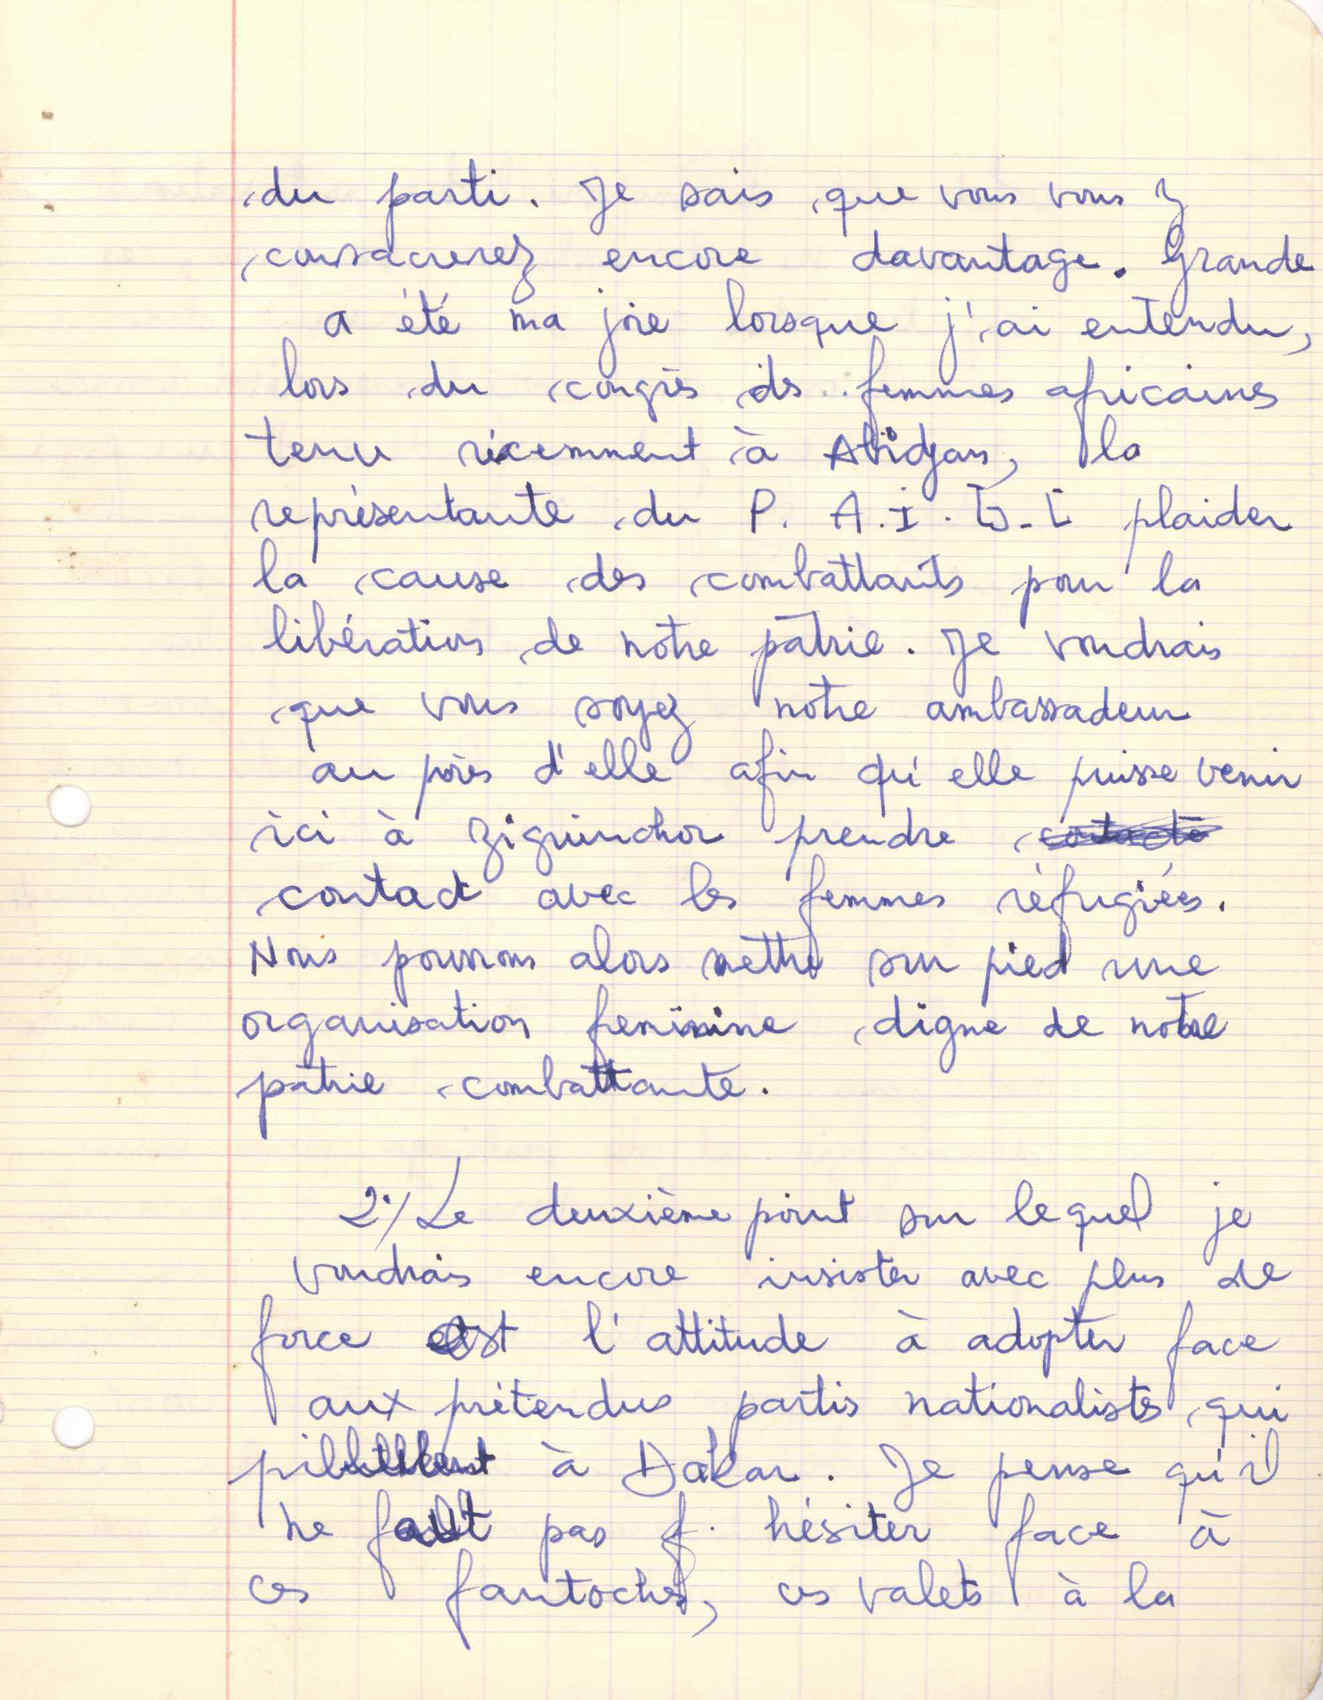 du parti. Je sais que vous vous y
consacrerez encore davantage. Grande
a été ma joie lorsque j'ai entendu,
lors du congrès des femmes africaines
tenu récemment à Abidjan, la
représentante du P. A. I. G. C plaider
la cause des combattants pour la
libération de notre patrie. Je voudrais
que vous soyez notre ambassadeur
au près d'elle afin qu'elle puisse venir
ici à Ziguinchor prendre contacte
contact avec les femmes réfugiées.
Nous pourrons alors mettre sur pied une
organisation feminine digne de notre
patrie combattante.
2°/ Le deuxième point sur lequel je
voudrais encore insister avec plus de
force est l'attitude à adopter face
aux prétendus partis nationalistes qui
pillullent à Dakar. Je pense qu'il
ne faut pas f. hésiter face à
ces fantoches, ces valets à la